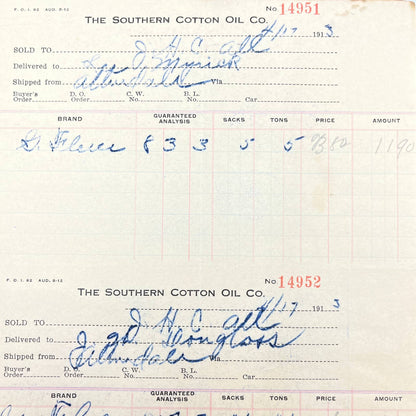 F. O. I. 82 AUG. 8-12
No. 14951
THE SOUTHERN COTTON OIL CO.
4/17 1913
SOLD TO J H C all
Delivered to Lee J Myrick
Shipped from Allendale Via
Buyer's Order. D. O. Order No. C. W. No. B. L. No. Car
BRAND GUARANTEED ANALYSIS SACKS TONS PRICE AMOUNT
8 3 3 5 5
F. O. I. 82 AUG. 8-12
No. 14952
THE SOUTHERN COTTON OIL CO.
4/17 1913
SOLD TO J H C all
Delivered to
Shipped from Allendale Via
Buyer's Order. D. O. Order No. C. W. No. B. L. No. Car
BRAND GUARANTEED ANALYSIS SACKS TONS PRICE AMOUNT